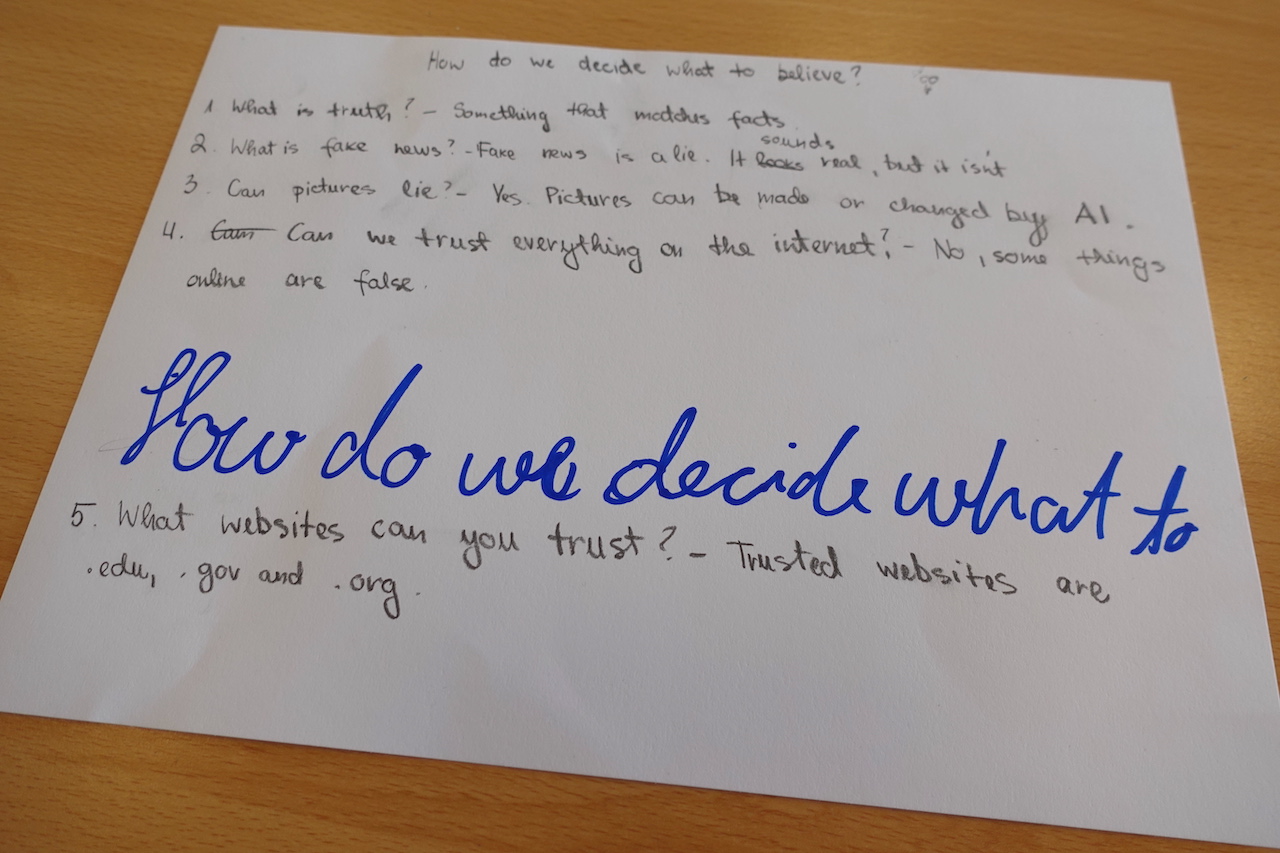 How do we decide what to believe?
1 What is truth? - Something that matches facts.
2. What is fake news? - Fake news is a lie. It sounds real, but it isn't
3. Can pictures lie? - Yes. Pictures can be made or changed by AI.
4. Can Can we trust everything on the internet? - No, some things
online are false.
How do we decide what to
5. What websites can you trust? - Trusted websites are
.edu, .gov and .org.